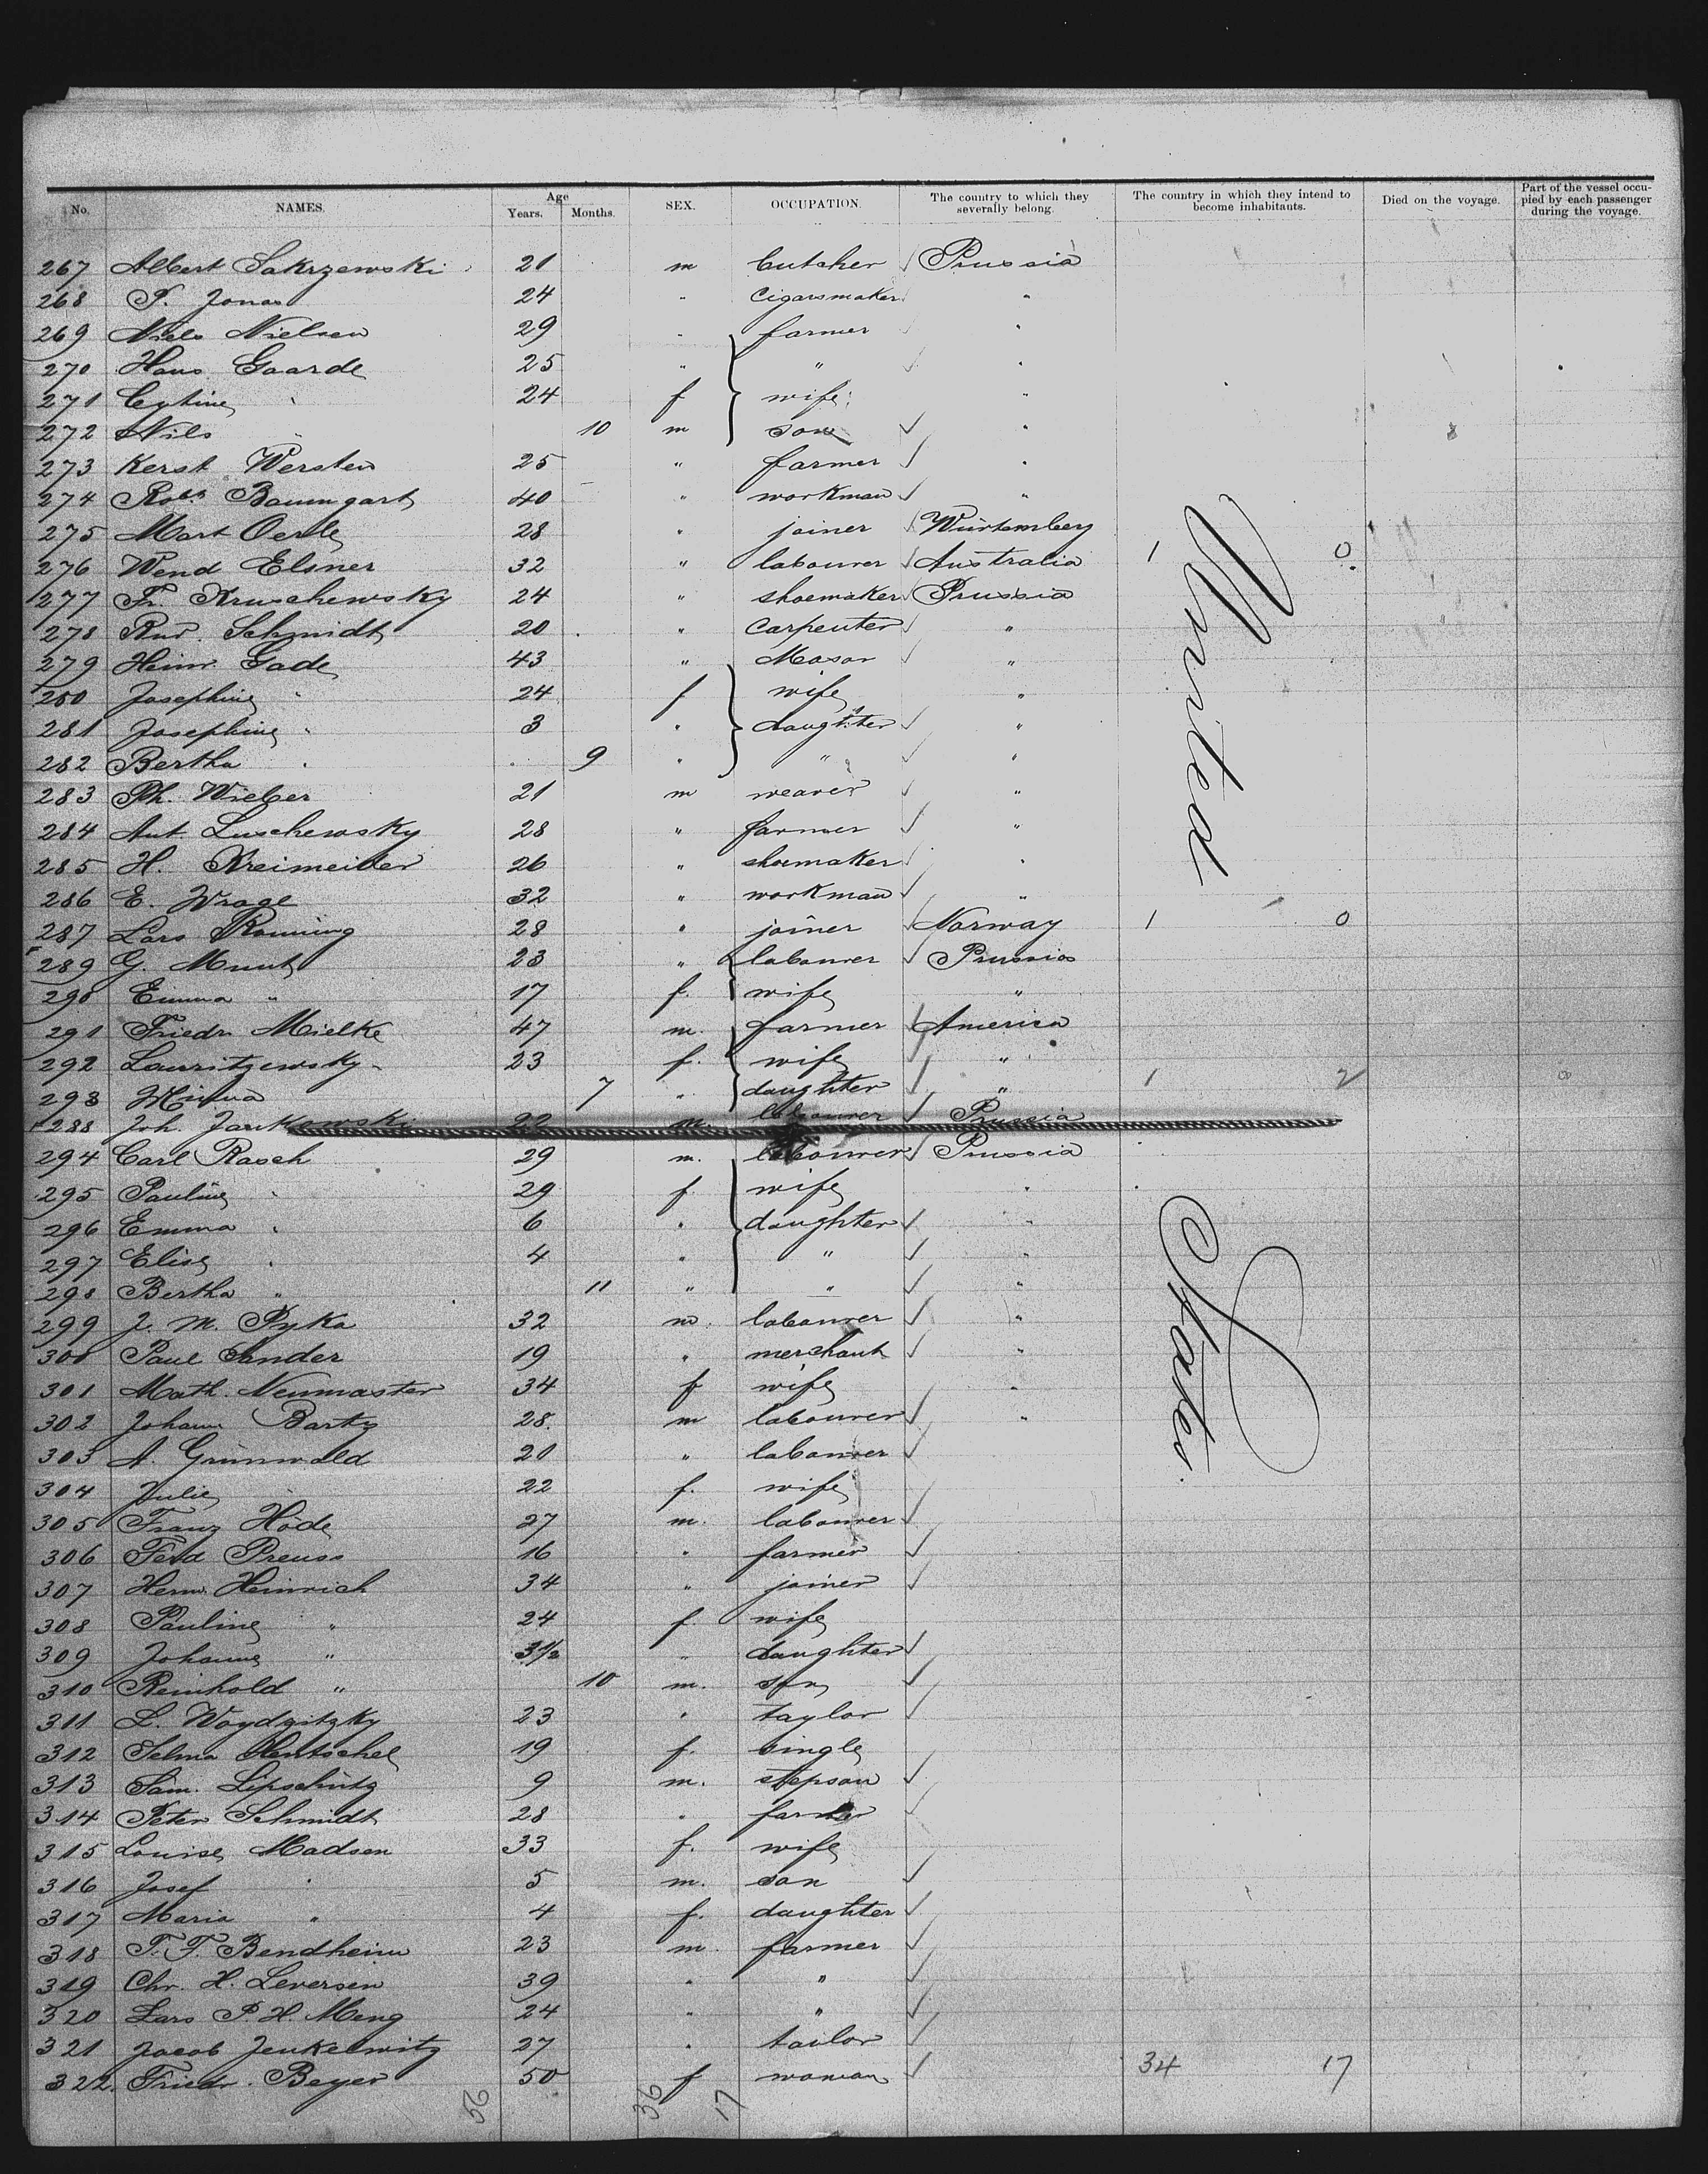 No. NAMES. Age Years. Months. SEX. OCCUPATION. The country to which they severally belong. The country in which they intend to become inhabitants. Died on the voyage. Part of the vessel occupied by each passenger during the voyage.
267 Albert Sakrzewski 21 m butcher ✓ Prussia
268 P. Jonas 24 " cigarsmaker "
269 Niels Nielsen 29 " farmer "
270 Hans Gaarde 25 " " ✓ "
271 " 24 f wife "
272 Nils " 10 m son ✓ "
273 Kerst Wersten 25 " farmer ✓ "
274 Robt Baumgart 40 " workman ✓ "
275 Mart Oerle 28 " joiner ✓ Würtemberg
276 Wend Elsner 32 " labourer ✓ Australia 1 0
277 Fr. Kruschewsky 24 " shoemaker ✓ Prussia
278 Rud. Schmidt 20 " carpenter ✓ "
279 Heinr. Gade 43 " Mason ✓ "
280 Josephine " 24 f wife "
281 Josephine " 3 " daughter ✓ "
282 Bertha " 9 " " ✓ "
283 Ph. Wieber 21 m weaver ✓ "
284 Ant. Luschewsky 28 " farmer ✓ "
285 H. Kreimeider 26 " shoemaker ✓ "
286 E. Wrage 32 " workman ✓ "
287 Lars Ronning 28 " joiner ✓ Norway 1 0
289 G. Munt 23 " labourer ✓ Prussia
290 Emma " 17 f. wife "
291 Friedr. Mielke 47 m. farmer ✓ America
292 Lauritzewsky 23 f. wife ✓ "
293 Minna 7 " daughter ✓ " 1 2
288 Joh. Jankowski 22 m labourer ✓ Prussia
294 Carl Rasch 29 m. labourer ✓ Prussia
295 Pauline " 29 f wife "
296 Emma " 6 " daughter ✓ "
297 Elise " 4 " " ✓ "
298 Bertha " 11 " " ✓ "
299 J. M. Pyka 32 m. labourer ✓ "
300 Paul Sander 19 " merchant ✓ "
301 Math. Neumaster 34 f wife "
302 Johann Bartz 28 m labourer ✓ "
303 A. Grünwald 20 " labourer ✓
304 Julie " 22 f. wife
305 Franz Höde 27 m. labourer ✓
306 Ferd Preuss 16 " farmer ✓
307 Herm. Heinrich 34 " joiner ✓
308 Pauline " 24 f wife
309 Johanne " 3½ " daughter ✓
310 Reinhold " 10 m. son ✓
311 L. Woydzitzky 23 " taylor ✓
312 Selma Hentschel 19 f. single
313 Sam. Lipschütz 9 m. stepson ✓
314 Peter Schmidt 28 " farmer ✓
315 Louise Madsen 33 f. wife
316 Josef " 5 m. son ✓
317 Maria " 4 f. daughter ✓
318 T. F. Bendheim 23 m. farmer ✓
319 Chr. H. Leversen 39 " " ✓
320 Lars P. H. Meng 24 " " ✓
321 Jacob Jenkelwitz 27 " tailor ✓
322. Friedr. Beyer 50 f woman ✓ 34 17
United States.
36 17